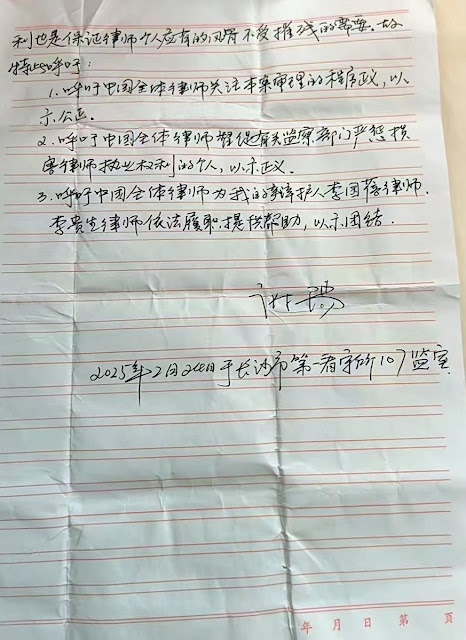 利也是保证律师个人应有的风骨不受摧残的需要。故
特此呼吁:
1. 呼吁中国全体律师关注本案审理的程序正义,以
示公正。
2. 呼吁中国全体律师督促有关监察部门严惩损
害律师执业权利的个人,以示正义。
3. 呼吁中国全体律师为我的辩护人李国蓓律师、
李贵生律师依法履职提供帮助,以示团结。
谢阳
2025年2月24日于长沙市第一看守所107监室
年 月 日 第 頁